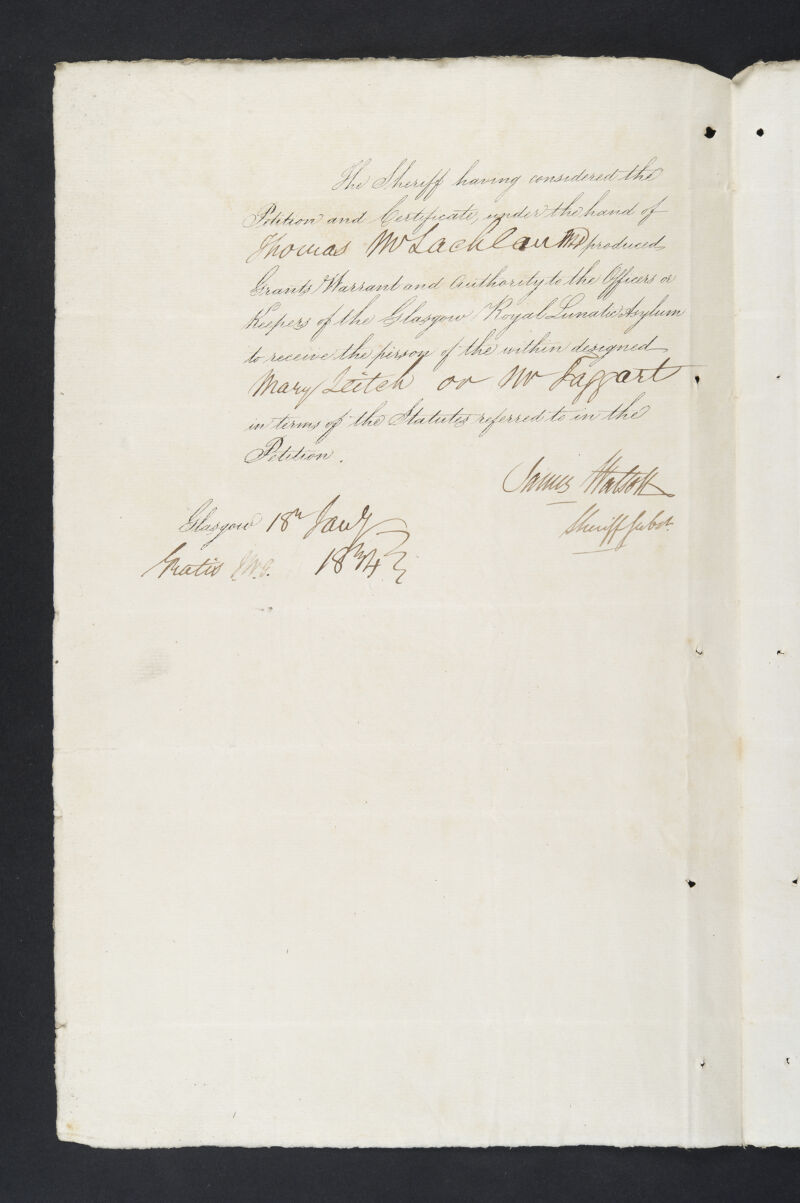 The Sheriff having considered the
Petition and Certificate, under the hand of
Thomas McLachlan MD produced
Grants Warrant and Authority to the Officers or
Keepers of the Glasgow Royal Lunatic Asylum
to receive the person of the within designed
Mary Leitch or McTaggart
in terms of the Statutes referred to in the
Petition.
James Watson
Sheriff Subst.
Glasgow 18th Jany
Gratis 1834